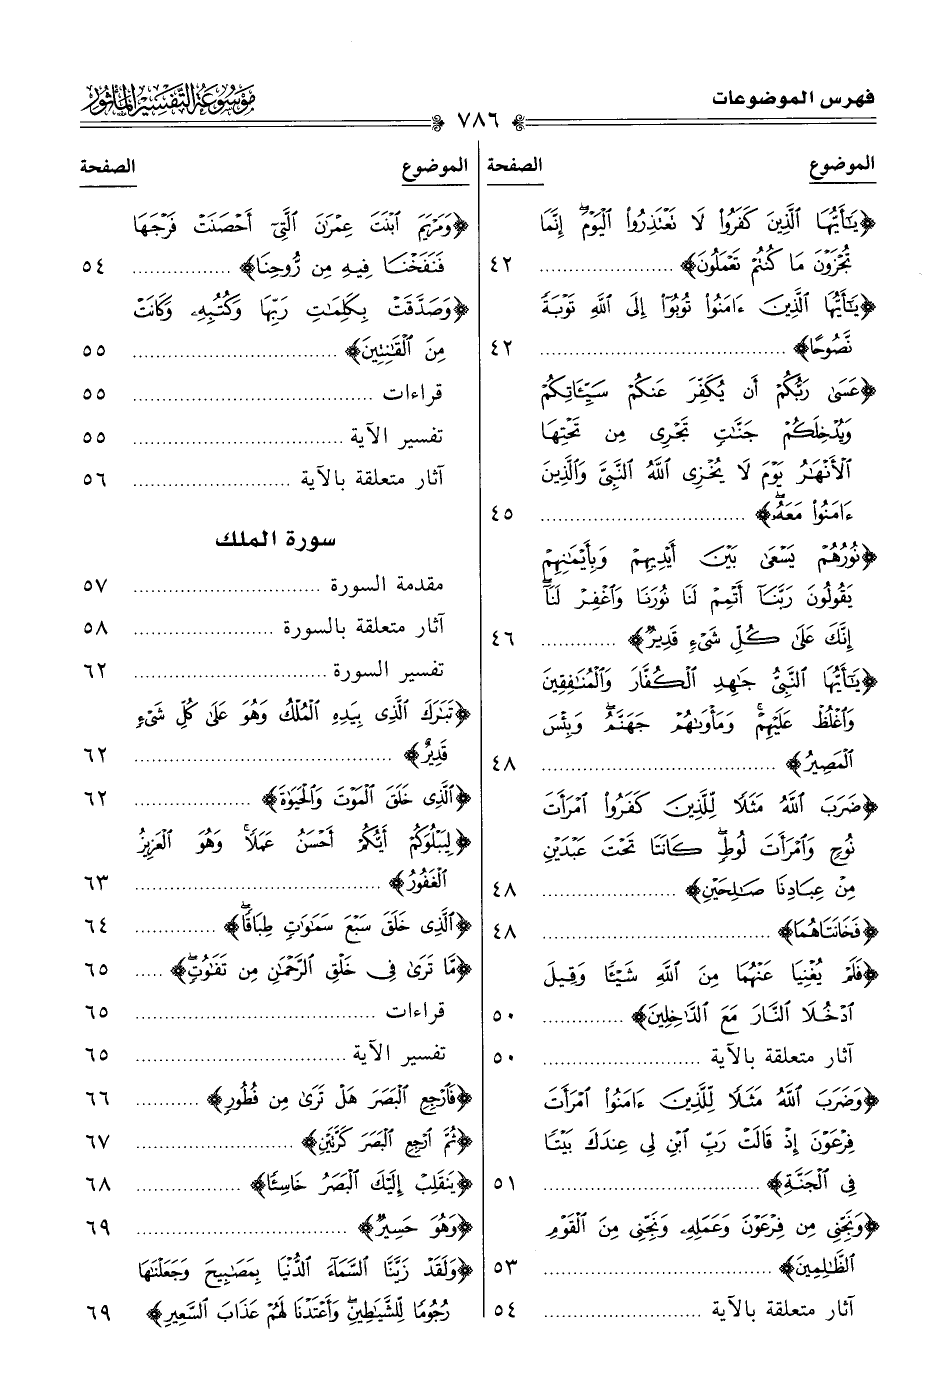 فهرس الموضوعات
٧٨٦
موسوعة التفسير المأثور
الموضوع الصفحة
﴿يَٰٓأَيُّهَا ٱلَّذِينَ كَفَرُوا۟ لَا تَعْتَذِرُوا۟ ٱلْيَوْمَ ۖ إِنَّمَا
تُجْزَوْنَ مَا كُنتُمْ تَعْمَلُونَ﴾ .................... ٤٢
﴿يَٰٓأَيُّهَا ٱلَّذِينَ ءَامَنُوا۟ تُوبُوٓا۟ إِلَى ٱللَّهِ تَوْبَةً
نَّصُوحًا﴾ .................... ٤٢
﴿عَسَىٰ رَبُّكُمْ أَن يُكَفِّرَ عَنكُمْ سَيِّـَٔاتِكُمْ
وَيُدْخِلَكُمْ جَنَّٰتٍ تَجْرِى مِن تَحْتِهَا
ٱلْأَنْهَٰرُ يَوْمَ لَا يُخْزِى ٱللَّهُ ٱلنَّبِىَّ وَٱلَّذِينَ
ءَامَنُوا۟ مَعَهُۥ ۖ﴾ .................... ٤٥
﴿نُورُهُمْ يَسْعَىٰ بَيْنَ أَيْدِيهِمْ وَبِأَيْمَٰنِهِمْ
يَقُولُونَ رَبَّنَآ أَتْمِمْ لَنَا نُورَنَا وَٱغْفِرْ لَنَآ ۖ
إِنَّكَ عَلَىٰ كُلِّ شَىْءٍ قَدِيرٌ﴾ ............ ٤٦
﴿يَٰٓأَيُّهَا ٱلنَّبِىُّ جَٰهِدِ ٱلْكُفَّارَ وَٱلْمُنَٰفِقِينَ
وَٱغْلُظْ عَلَيْهِمْ ۚ وَمَأْوَىٰهُمْ جَهَنَّمُ ۖ وَبِئْسَ
ٱلْمَصِيرُ﴾ .................... ٤٨
﴿ضَرَبَ ٱللَّهُ مَثَلًا لِّلَّذِينَ كَفَرُوا۟ ٱمْرَأَتَ
نُوحٍ وَٱمْرَأَتَ لُوطٍ ۖ كَانَتَا تَحْتَ عَبْدَيْنِ
مِنْ عِبَادِنَا صَٰلِحَيْنِ﴾ .................... ٤٨
﴿فَخَانَتَاهُمَا﴾ .................... ٤٨
﴿فَلَمْ يُغْنِيَا عَنْهُمَا مِنَ ٱللَّهِ شَيْـًٔا وَقِيلَ
ٱدْخُلَا ٱلنَّارَ مَعَ ٱلدَّٰخِلِينَ﴾ ............ ٥٠
آثار متعلقة بالآية .................... ٥٠
﴿وَضَرَبَ ٱللَّهُ مَثَلًا لِّلَّذِينَ ءَامَنُوا۟ ٱمْرَأَتَ
فِرْعَوْنَ إِذْ قَالَتْ رَبِّ ٱبْنِ لِى عِندَكَ بَيْتًا
فِى ٱلْجَنَّةِ﴾ .................... ٥١
﴿وَنَجِّنِى مِن فِرْعَوْنَ وَعَمَلِهِۦ وَنَجِّنِى مِنَ ٱلْقَوْمِ
ٱلظَّٰلِمِينَ﴾ .................... ٥٣
آثار متعلقة بالآية .................... ٥٤
الموضوع الصفحة
﴿وَمَرْيَمَ ٱبْنَتَ عِمْرَٰنَ ٱلَّتِىٓ أَحْصَنَتْ فَرْجَهَا
فَنَفَخْنَا فِيهِ مِن رُّوحِنَا﴾ ................ ٥٤
﴿وَصَدَّقَتْ بِكَلِمَٰتِ رَبِّهَا وَكُتُبِهِۦ وَكَانَتْ
مِنَ ٱلْقَٰنِتِينَ﴾ .................... ٥٥
قراءات .................... ٥٥
تفسير الآية .................... ٥٥
آثار متعلقة بالآية .................... ٥٦
سورة الملك
مقدمة السورة .................... ٥٧
آثار متعلقة بالسورة .................... ٥٨
تفسير السورة .................... ٦٢
﴿تَبَٰرَكَ ٱلَّذِى بِيَدِهِ ٱلْمُلْكُ وَهُوَ عَلَىٰ كُلِّ شَىْءٍ
قَدِيرٌ﴾ .................... ٦٢
﴿ٱلَّذِى خَلَقَ ٱلْمَوْتَ وَٱلْحَيَوٰةَ﴾ .................... ٦٢
﴿لِيَبْلُوَكُمْ أَيُّكُمْ أَحْسَنُ عَمَلًا ۚ وَهُوَ ٱلْعَزِيزُ
ٱلْغَفُورُ﴾ .................... ٦٣
﴿ٱلَّذِى خَلَقَ سَبْعَ سَمَٰوَٰتٍ طِبَاقًا ۖ﴾ ............ ٦٤
﴿مَّا تَرَىٰ فِى خَلْقِ ٱلرَّحْمَٰنِ مِن تَفَٰوُتٍ ۖ﴾ ..... ٦٥
قراءات .................... ٦٥
تفسير الآية .................... ٦٥
﴿فَٱرْجِعِ ٱلْبَصَرَ هَلْ تَرَىٰ مِن فُطُورٍ﴾ .......... ٦٦
﴿ثُمَّ ٱرْجِعِ ٱلْبَصَرَ كَرَّتَيْنِ﴾ .................... ٦٧
﴿يَنقَلِبْ إِلَيْكَ ٱلْبَصَرُ خَاسِئًا﴾ ................ ٦٨
﴿وَهُوَ حَسِيرٌ﴾ .................... ٦٩
﴿وَلَقَدْ زَيَّنَّا ٱلسَّمَآءَ ٱلدُّنْيَا بِمَصَٰبِيحَ وَجَعَلْنَٰهَا
رُجُومًا لِّلشَّيَٰطِينِ ۖ وَأَعْتَدْنَا لَهُمْ عَذَابَ ٱلسَّعِيرِ﴾ ٦٩